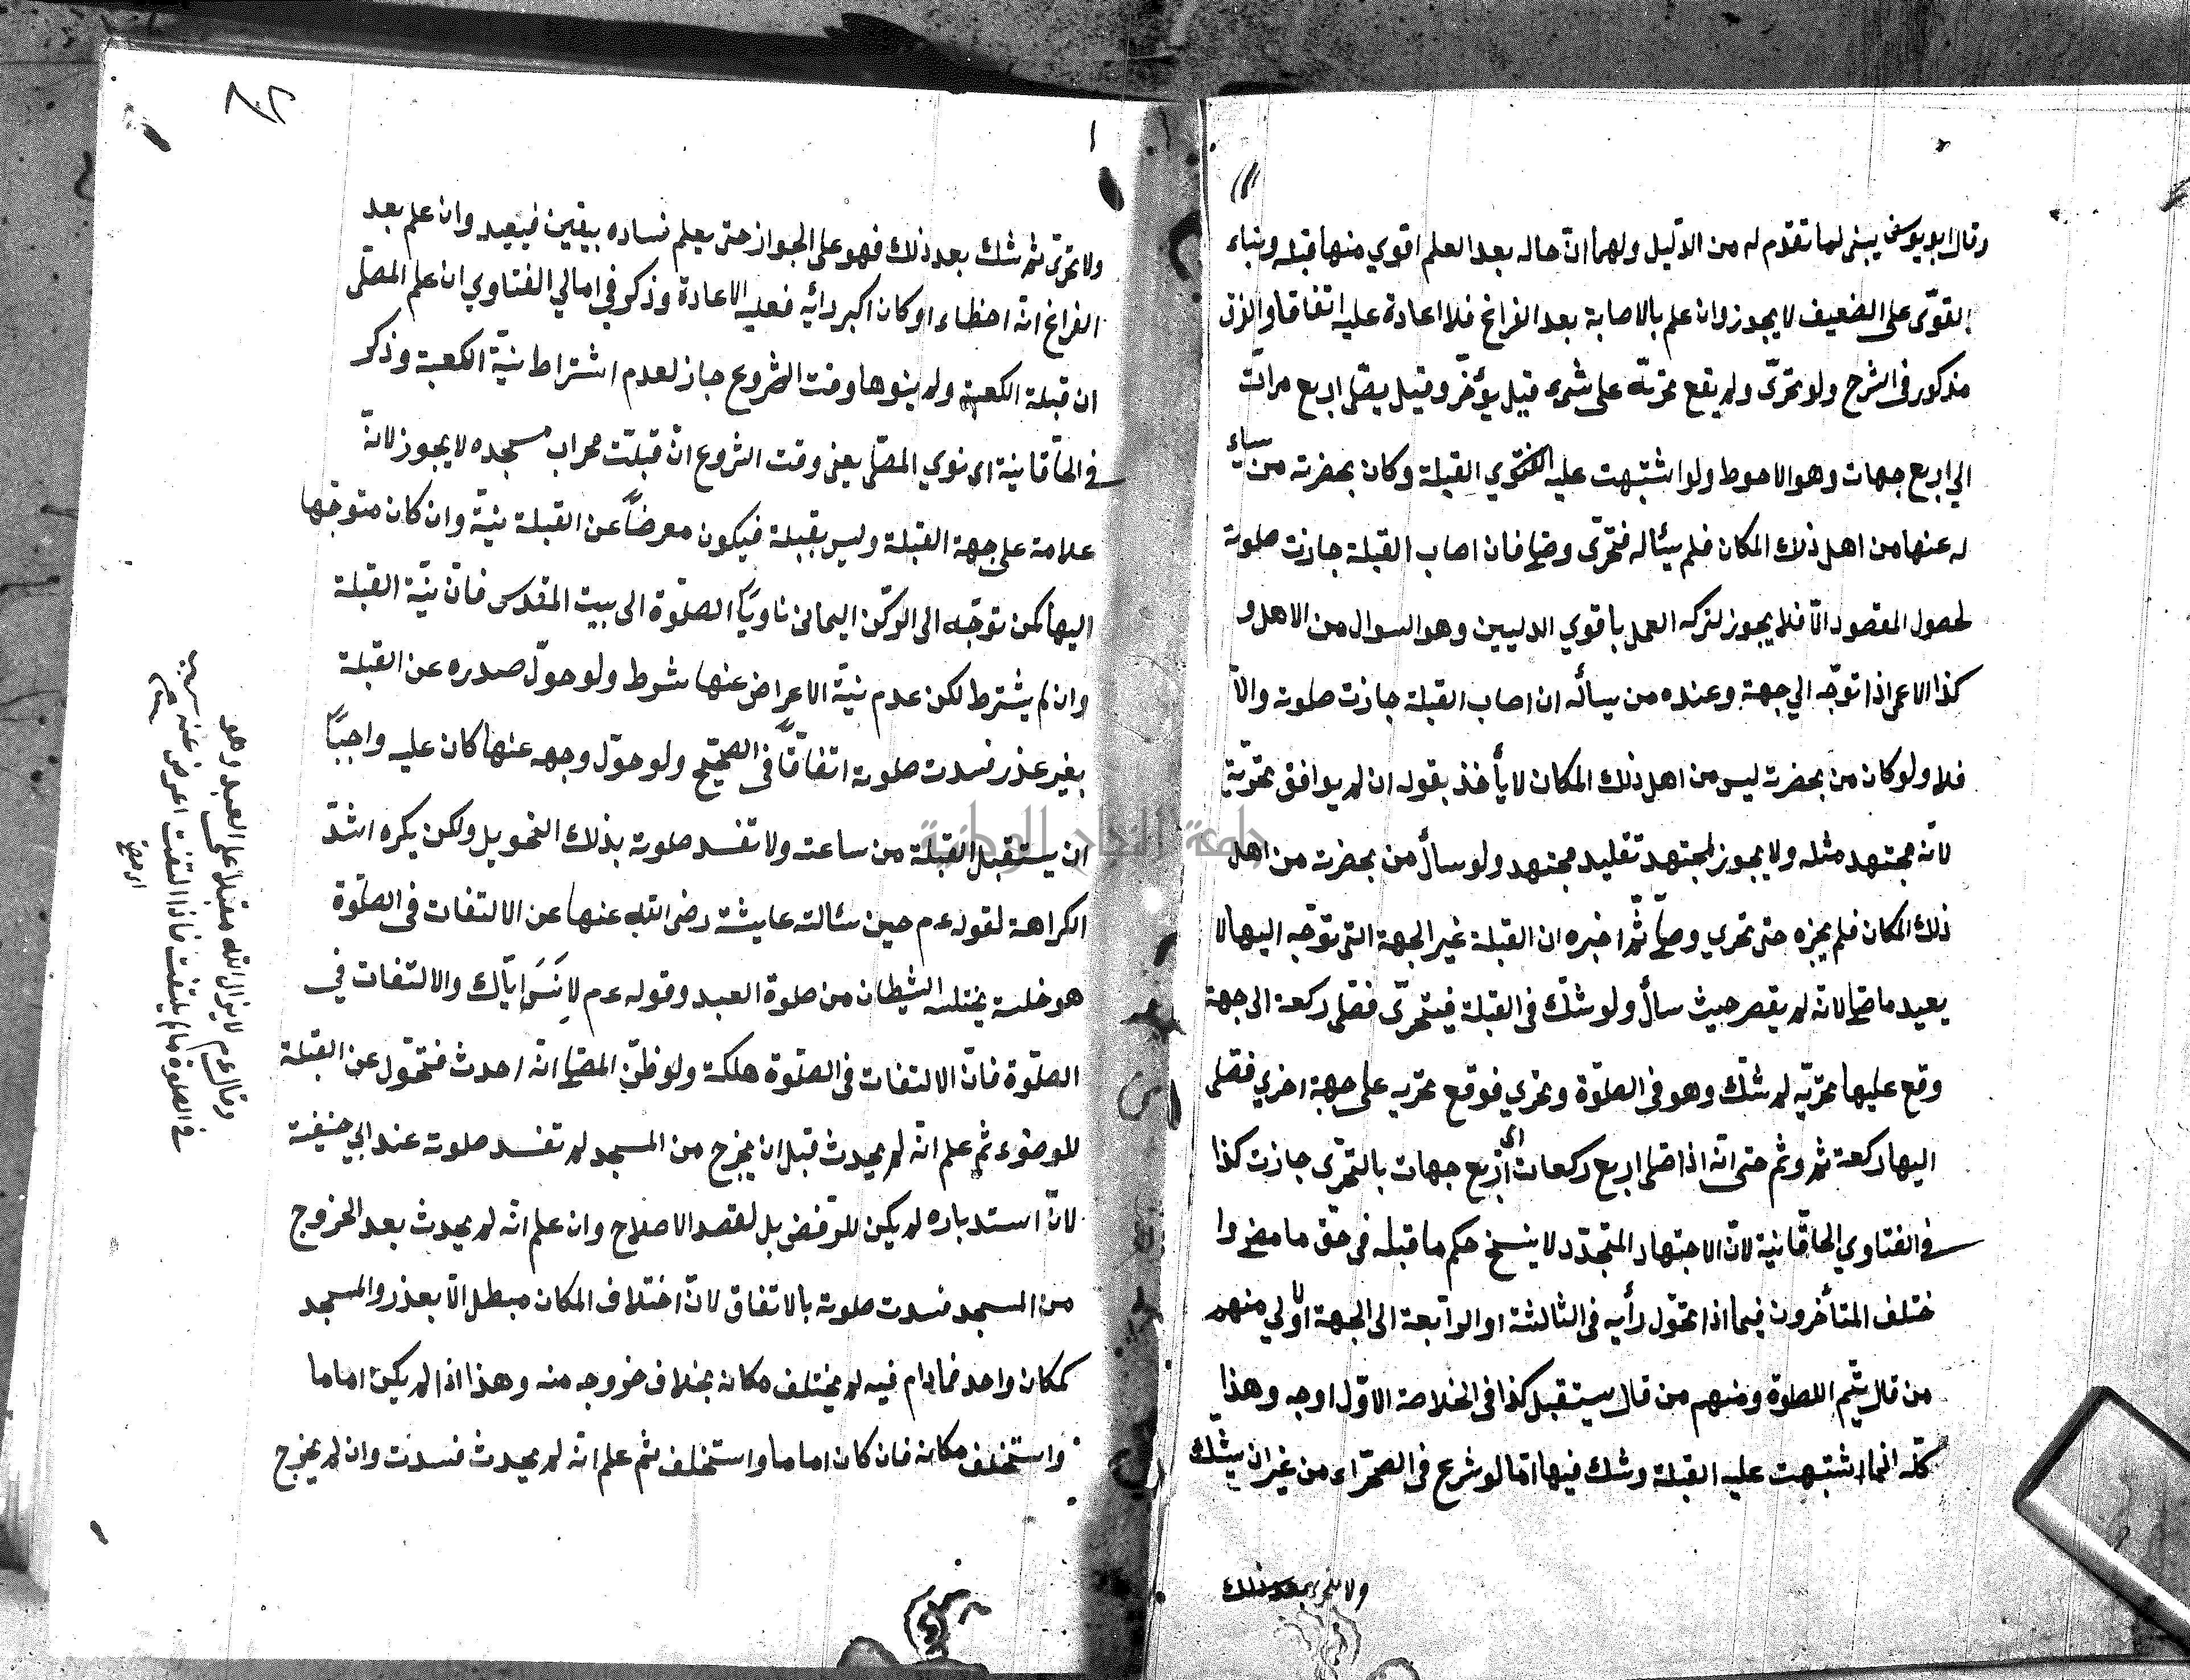 وقال ابو يوسف يبنى لما تقدم له من الدّليل ولهما انّ حاله بعد العلم اقوي منها قبله وبناء
القوّى على الضعيف لا يجوز وان علم بالاصابة بعد الفراغ فلا اعادة عليه اتفاقا والفرق
مذكور فى الشرح ولو تحرّى ولم يقع تحرّيه على شئ قيل يؤخّر وقيل يصّلى اربع مرّات
الي اربع جهات وهو الاحوط ولو اشتبهت عليه القبلة وكان بحضرته من يساء
له عنها من اهل ذلك المكان فلم يسئاله فتحرّى وصلى فان اصاب القبلة جازت صلوته
لحصول المقصود الّا فلا يجوز لتركه العمل باقوي الدليلين وهو السوال من الاهل و
كذا الاعمى اذا توجّه الي جهة وعنده من يسأله ان اصاب القبلة جازت صلوته والّا
فلا ولو كان من بحضرته ليس من اهل ذلك المكان لا يأخذ بقوله ان لم يوافق تحرّيه
لانّه مجتهد مثله ولا يجوز لمجتهد تقليد مجتهد ولو سأل من بحضرته من اهل
ذلك المكان فلم يخبره حتى تحري وصلّى ثمّ اخبره ان القبلة غير الجهة التى توّجه اليها لا
يعيد ما صلى لانّه لم يقصر حيث سأل ولو شكّ فى القبلة فيتحرّى فصّلى ركعة الى جهة
وقع عليها تحرّيه ثم شكّ وهو فى الصلوّة وتحري فوقع تحريه على جهة اخري فصّلى
اليها ركعة ثم وثم حتى انّه اذا صّلى اربع ركعات الى اربع جهات بالتحرّى جازت كذا
فى الفتاوي الخاقانية لانّ الاجتهاد المتجدّد لا ينسخ حكم ما قبله فى حقّ ما مضى وا
ختلف المتأخرون فيما اذا تحّول رأيه فى الثالثة او الرّابعة الى الجهة الاولي منهم
من قال يتّم الصلوة ومنهم من قال يستقبل كذا فى الخلاصة الاوّل اوجه وهذا
كلّه اذا اشتبهت عليه القبلة وشك فيها امّا لو شرع فى الصحّراء من غير ان يشّك
ولا تحرى بعد ذلك
ولا تحرّى ثم شك بعد ذلك فهو على الجواز حتى يعلم فساده بيقين فيعيد وان علم بعد
الفراغ انّه اخطاء او كان اكبر رائيه فعليه الاعادة وذكر في امالي الفتاوي ان علم المصلّى
ان قبلة الكعبة ولم ينوها وقت الشروع جاز لعدم اشتراط نيّة الكعبة وذكر
فى الخاقانية ان نوي المصّلى يعني وقت الشروع انّ قبلّته محراب مسجده لا يجوز لانّه
علامة على جهة القبلة وليس بقبلة فيكون معرضاً عن القبلة بنيّة وان كان متوجّها
اليها كمن توّجه الى الرّكن اليمانى ناوياً الصلوّة الى بيت المقدس فانّ نيّة القبلة
وان لم يشترط لكن عدم نيّة الاعراض عنها شوط ولو حوّل صدره عن القبلة
بغير عذر فسدت صلوته اتفاقاً فى الصحيّح ولو حوّل وجهه عنها كان عليه واجباً
ان يستقبل القبلة من ساعته ولا تفسد صلوته بذلك التحويل ولكن يكره اشدّ
الكراهة لقوله عم حين سئالته عايشة رضى الله عنها عن الالتفات فى الصلوّة
هو خلسة يختلسه الشيطان من صلوة العبد وقوله عم لانس ايّاك والالتفات في
الصلّوة فانّ الالتفات فى الصلّوة هلكة ولو ظنّ المصلى انّه احدث فتحّول عن القبلة
للوضوء ثم علم انّه لم يحدث قبل ان يخرج من المسجد لم تفسد صلوته عند ابي حنيفة
لانّ استدباره لم يكن للرّفض بل لقصد الاصلاح وان علم انّه لم يحدث بعد الخروج
من المسجد فسدت صلوته بالاتفاق لانّ اختلاف المكان مبطل الّا بعذر والمسجد
كمكان واحد فما دام فيه لم يختلف مكانه بخلاف خروجه منه وهذا اذا لم يكن اماما
واستخلف مكانه فان كان اماما واستخلف ثم علم انّه لم يحدث فسدت وان لم يخرج
وقال عم لا يزال الله مقبلا على العبد وهو
فى الصلوة ما لم يلتفت فاذا التفت اعرض عنه
جامعة النجاح الوطنية